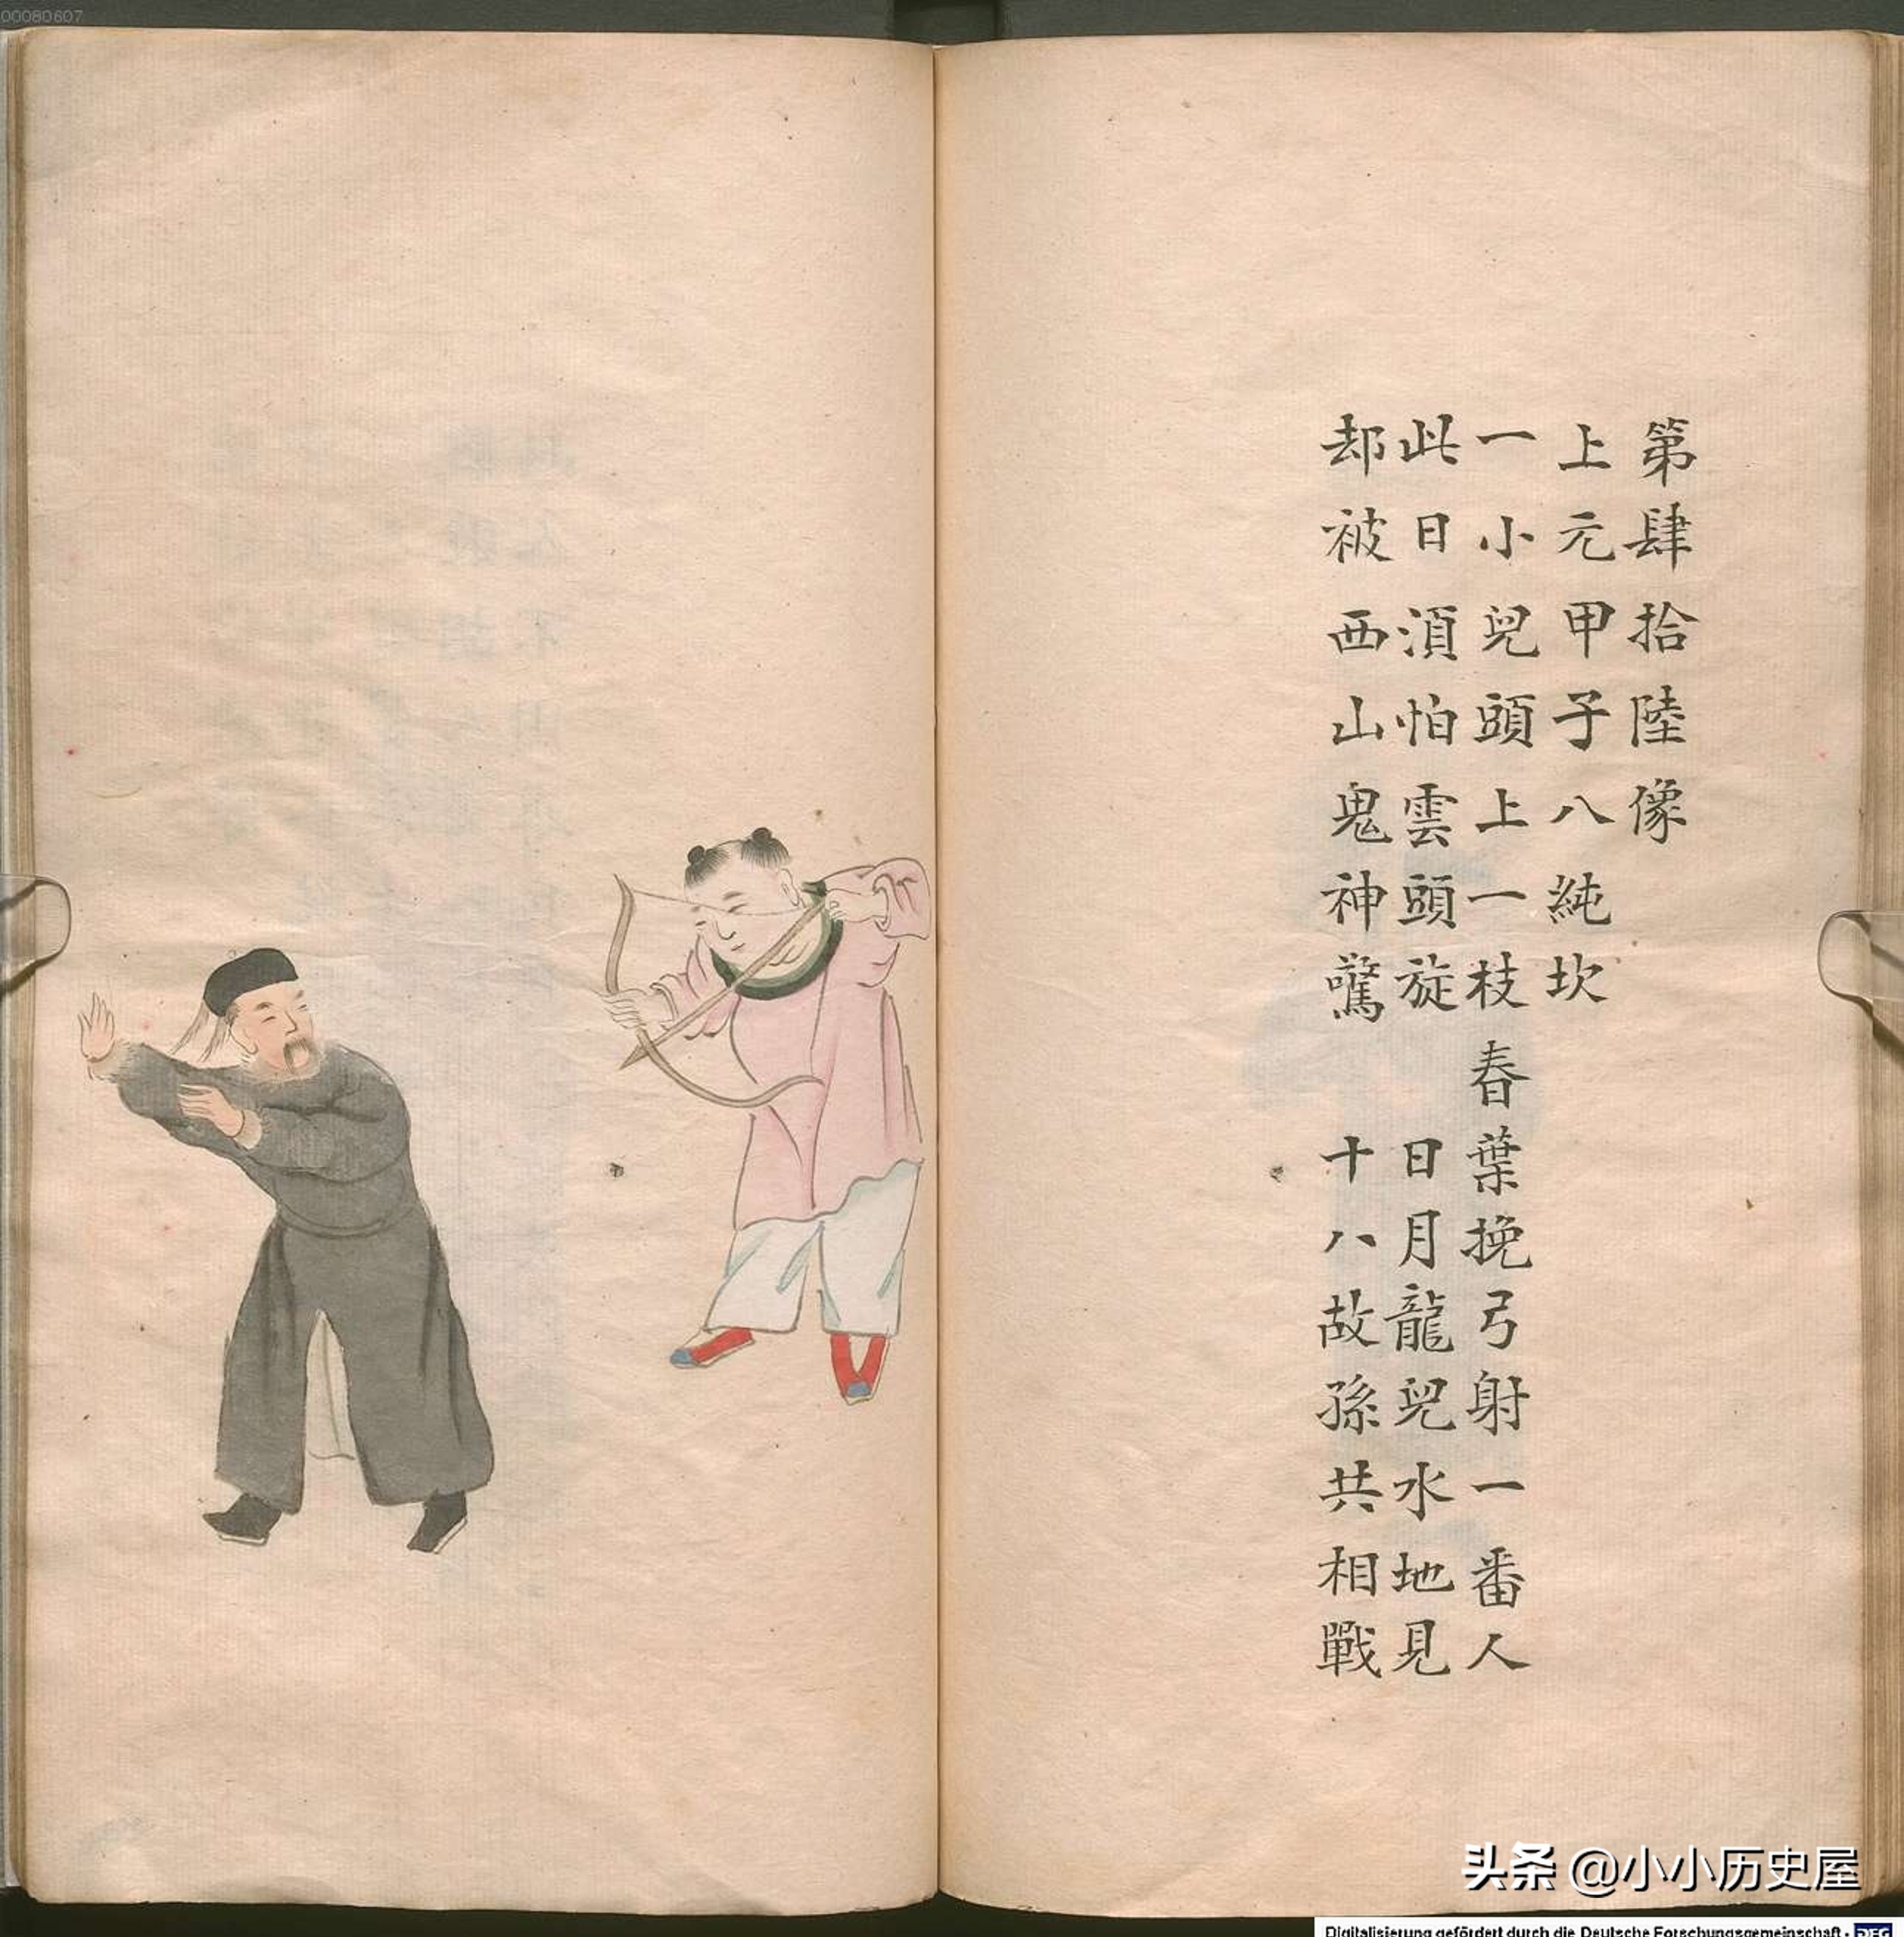 00080607
第肆拾陸像
上元甲子八純坎
一小兒頭上一枝春葉挽弓射一番人
此日須怕雲頭旋 日月龍兒水地見
却被西山鬼神驚 十八故孫共相戰
头条 @小小历史屋
Digitalisierung gefördert durch die Deutsche Forschungsgemeinschaft - DFG